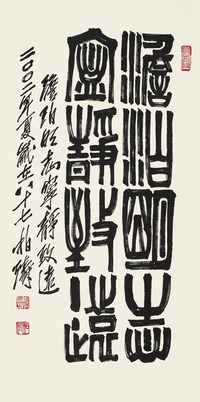 澹泊明志
寧靜致遠
澹泊明志寧靜致遠
二〇〇二年夏八十七